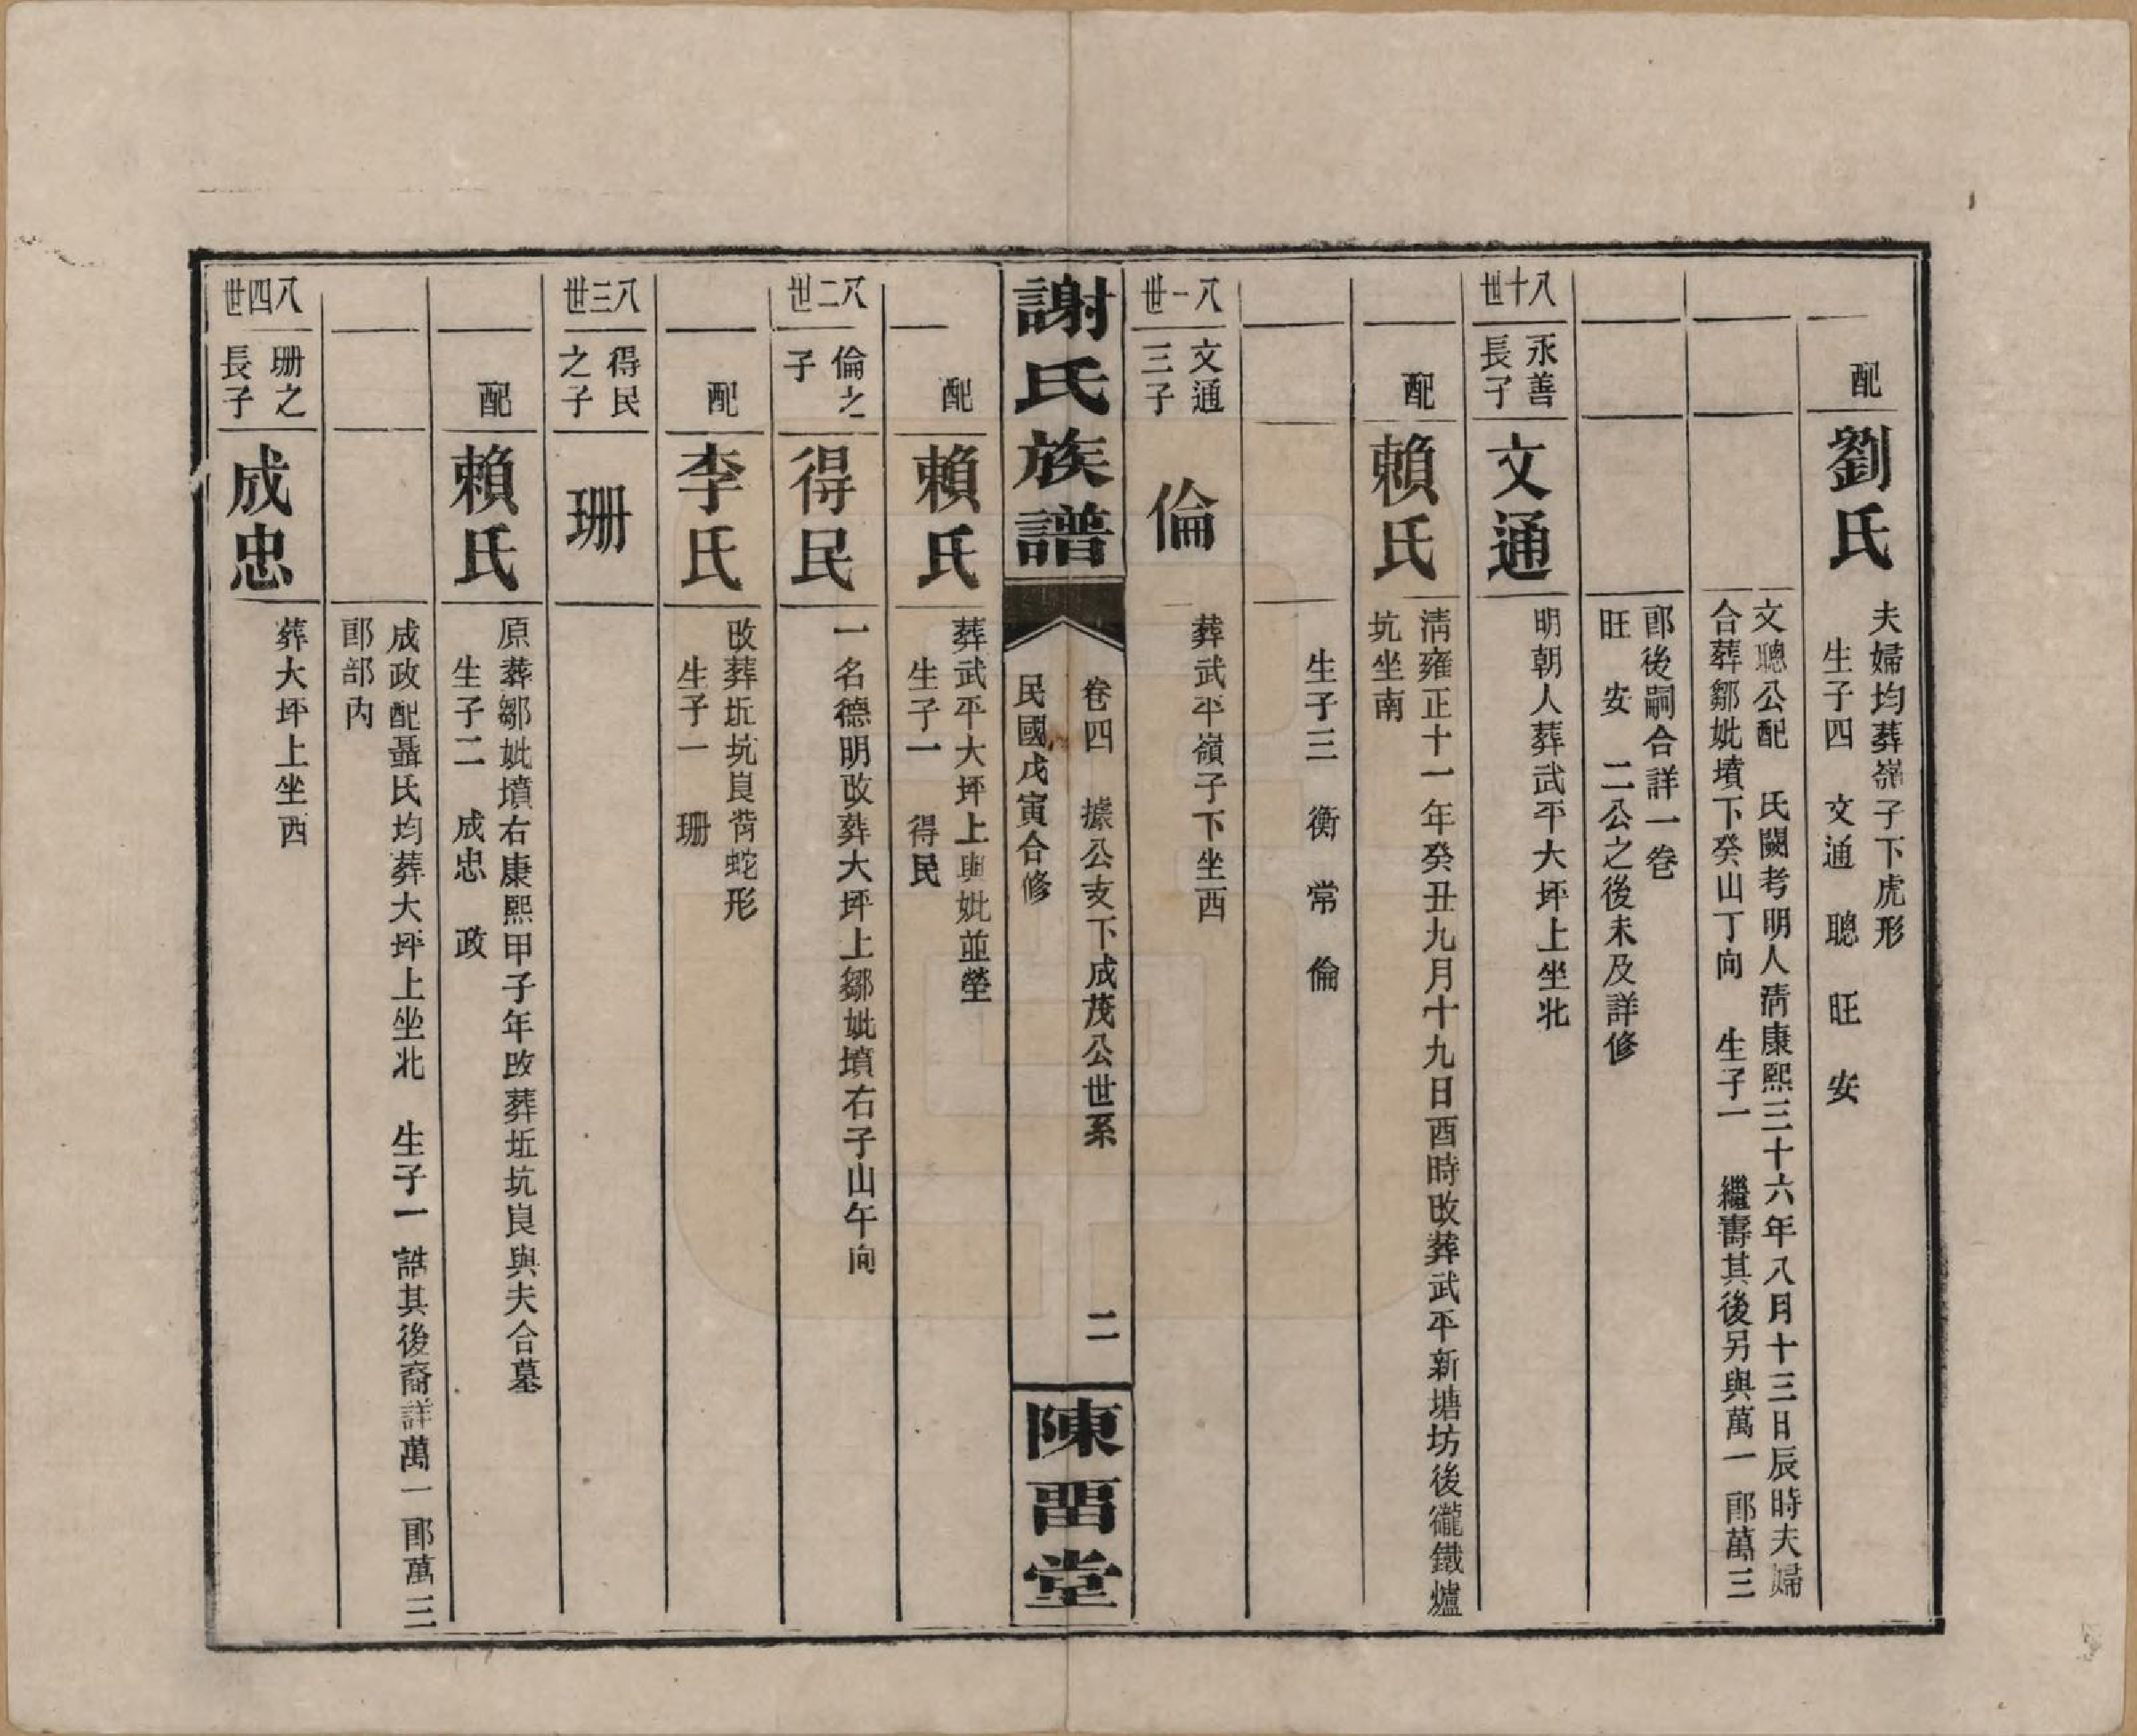 配
劉氏
夫婦均葬嶺子下虎形
生子四 文通 聰 旺 安
文聰公配 氏闕考明人清康熙三十六年八月十三日辰時夫婦
合葬鄒妣墳下癸山丁向 生子一 繼壽其後另與萬一郎萬三
郎後嗣合詳一卷
旺 安 二公之後未及詳修
八十世
永善
長子
文通
明朝人葬武平大坪上坐北
配
賴氏
清雍正十一年癸丑九月十九日酉時改葬武平新塘坊後 鐵爐
坑坐南
生子三 衡 常 倫
八一世
文通
三子
倫
葬武平嶺子下坐西
謝氏族譜
卷四 據公支下成茂公世系 二
民國戊寅合修
陳畱堂
配
賴氏
葬武平大坪上與妣並塋
生子一 得民
八二世
倫之
子
得民
一名德明改葬大坪上鄒妣墳右子山午向
配
李氏
改葬坵坑崀背蛇形
生子一 珊
八三世
得民
之子
珊
配
賴氏
原葬鄒妣墳右康熙甲子年改葬坵坑崀與夫合墓
生子二 成忠 政
成政配聶氏均葬大坪上坐北 生子一 誥其後裔詳萬一郎萬三
郎部內
八四世
珊之
長子
成忠
葬大坪上坐西